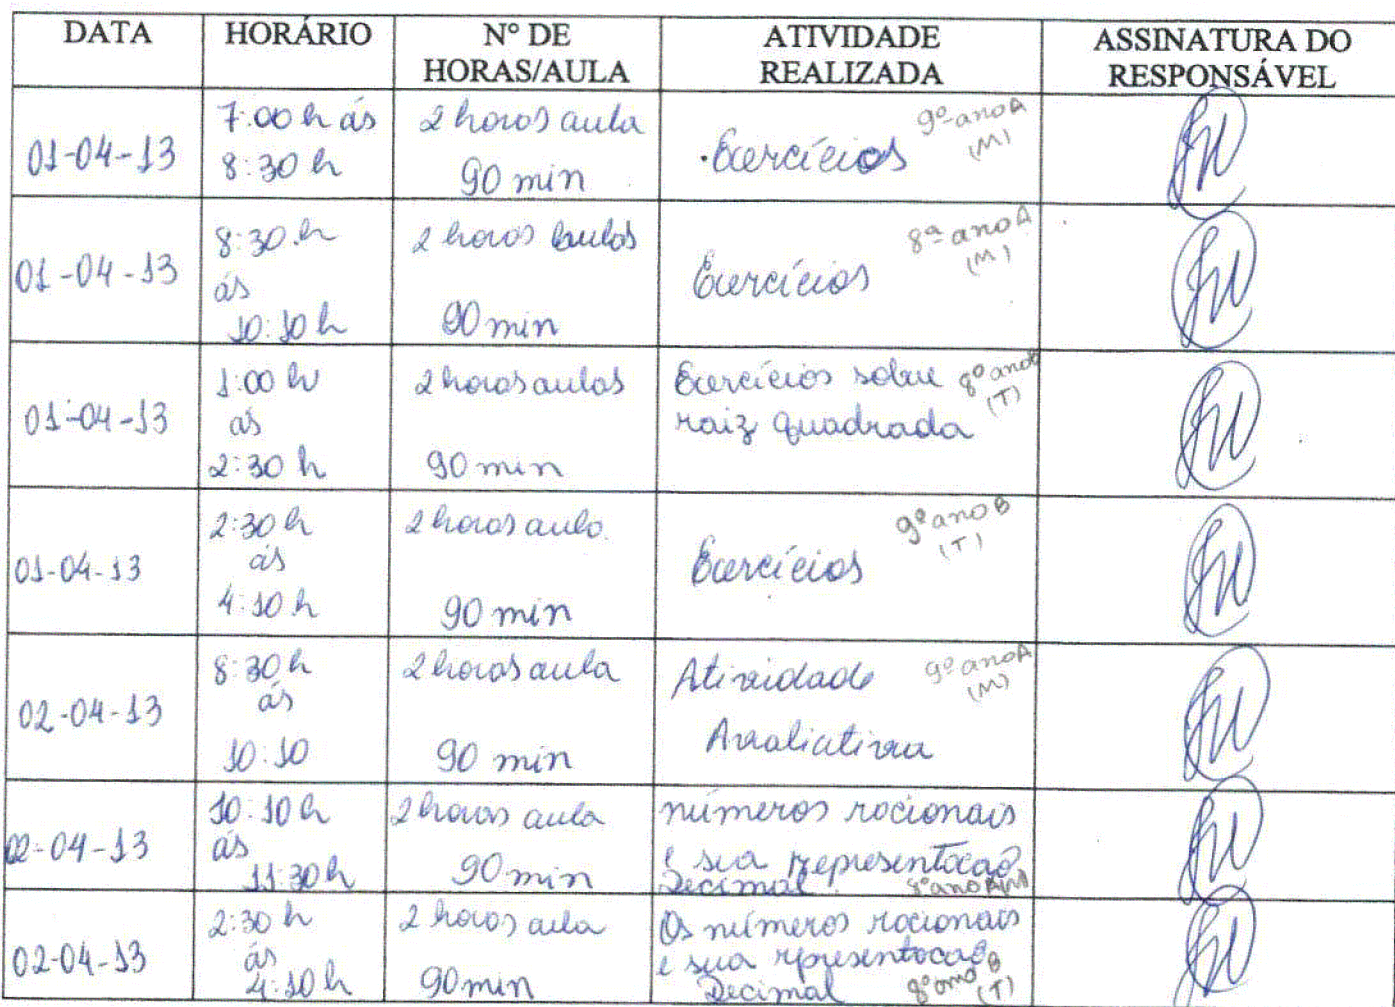 DATA HORÁRIO N° DE HORAS/AULA ATIVIDADE REALIZADA ASSINATURA DO RESPONSÁVEL
01-04-13
7:00 h ás
8:30 h
2 horas aula
90 min
Exercícios
9º ano A
(M)
01-04-13
8:30 h
ás
10:10 h
2 horas aulas
90 min
Exercícios
8ª ano A
(M)
01-04-13
1:00 h
ás
2:30 h
2 horas aulas
90 min
Exercícios sobre
raiz quadrada
8º ano B
(T)
01-04-13
2:30 h
ás
4:10 h
2 horas aula
90 min
Exercícios
9º ano B
(T)
02-04-13
8:30 h
ás
10:10
2 horas aula
90 min
Atividade
Avaliativa
9º ano A
(M)
02-04-13
10:10 h
ás
11:30 h
2 horas aula
90 min
números racionais
e sua representacão
Decimal
8º ano A (M)
02-04-13
2:30 h
ás
4:10 h
2 horas aula
90 min
Os números racionais
e sua representacão
Decimal
8º ano B
(T)